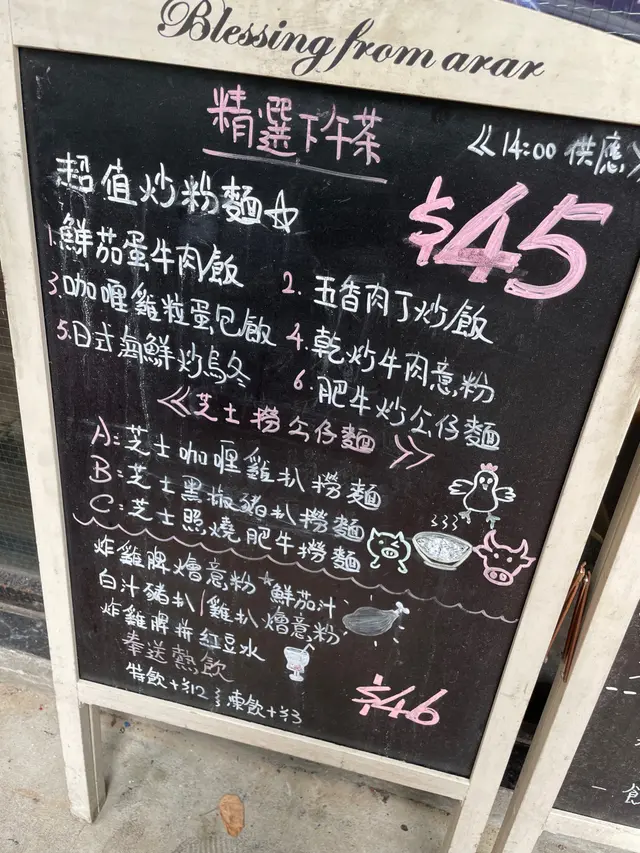 Blessing from arar
精選下午茶
≪14:00 供應≫
超值炒粉麵☆
$45
1.鮮茄蛋牛肉飯
2.五香肉丁炒飯
3.咖喱雞粒蛋包飯
4.乾炒牛肉意粉
5.日式海鮮炒烏冬
6.肥牛炒公仔麵
≪芝士撈公仔麵≫
A:芝士咖喱雞扒撈麵
B:芝士黑椒豬扒撈麵
C:芝士照燒肥牛撈麵
炸雞髀燴意粉*鮮茄汁
白汁豬扒/雞扒燴意粉
炸雞髀拼紅豆冰
奉送熱飲
特飲+$12 凍飲+$3
$46